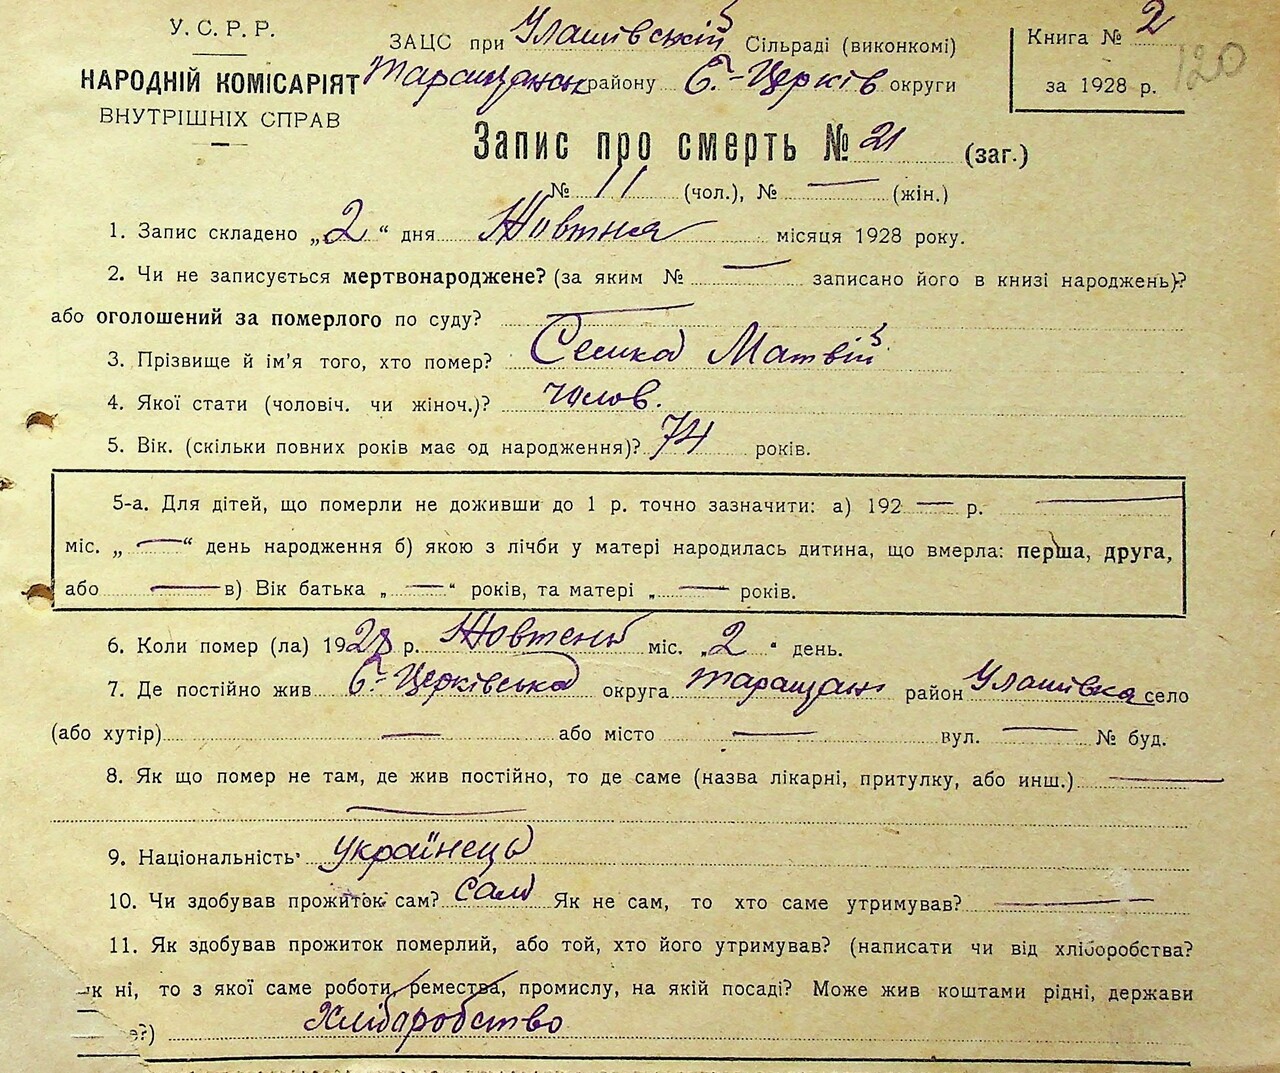 У. С. Р. Р.
НАРОДНІЙ КОМІСАРІЯТ
ВНУТРІШНІХ СПРАВ
ЗАЦС при Улашівській Сільраді (виконкомі)
Таращанськ району Б.-Церків округи
Книга № 2
за 1928 р.
120
Запис про смерть № 21 (заг.)
№ 11 (чол.), № — (жін.)
1. Запис складено „2“ дня Жовтня місяця 1928 року.
2. Чи не записується мертвонароджене? (за яким № — записано його в книзі народжень)?
або оголошений за померлого по суду? —
3. Прізвище й ім'я того, хто помер? Семка Матвій
4. Якої стати (чоловіч. чи жіноч.)? чолов.
5. Вік. (скільки повних років має од народження)? 74 років.
5-а. Для дітей, що померли не доживши до 1 р. точно зазначити: а) 192 — р. —
міс. „ — “ день народження б) якою з лічби у матері народилась дитина, що вмерла: перша, друга,
або — в) Вік батька „ — “ років, та матері „ — “ років.
6. Коли помер (ла) 1928 р. Жовтень міс. „2“ день.
7. Де постійно жив Б.-Церківська округа Таращан район Улашівка село
(або хутір) — або місто — вул. — № буд.
8. Як що помер не там, де жив постійно, то де саме (назва лікарні, притулку, або инш.) —
—
9. Національність Українець
10. Чи здобував прожиток сам? сам Як не сам, то хто саме утримував? —
11. Як здобував прожиток померлий, або той, хто його утримував? (написати чи від хліборобства?
як ні, то з якої саме роботи, ремества, промислу, на якій посаді? Може жив коштами рідні, держави
е?) Хліборобство